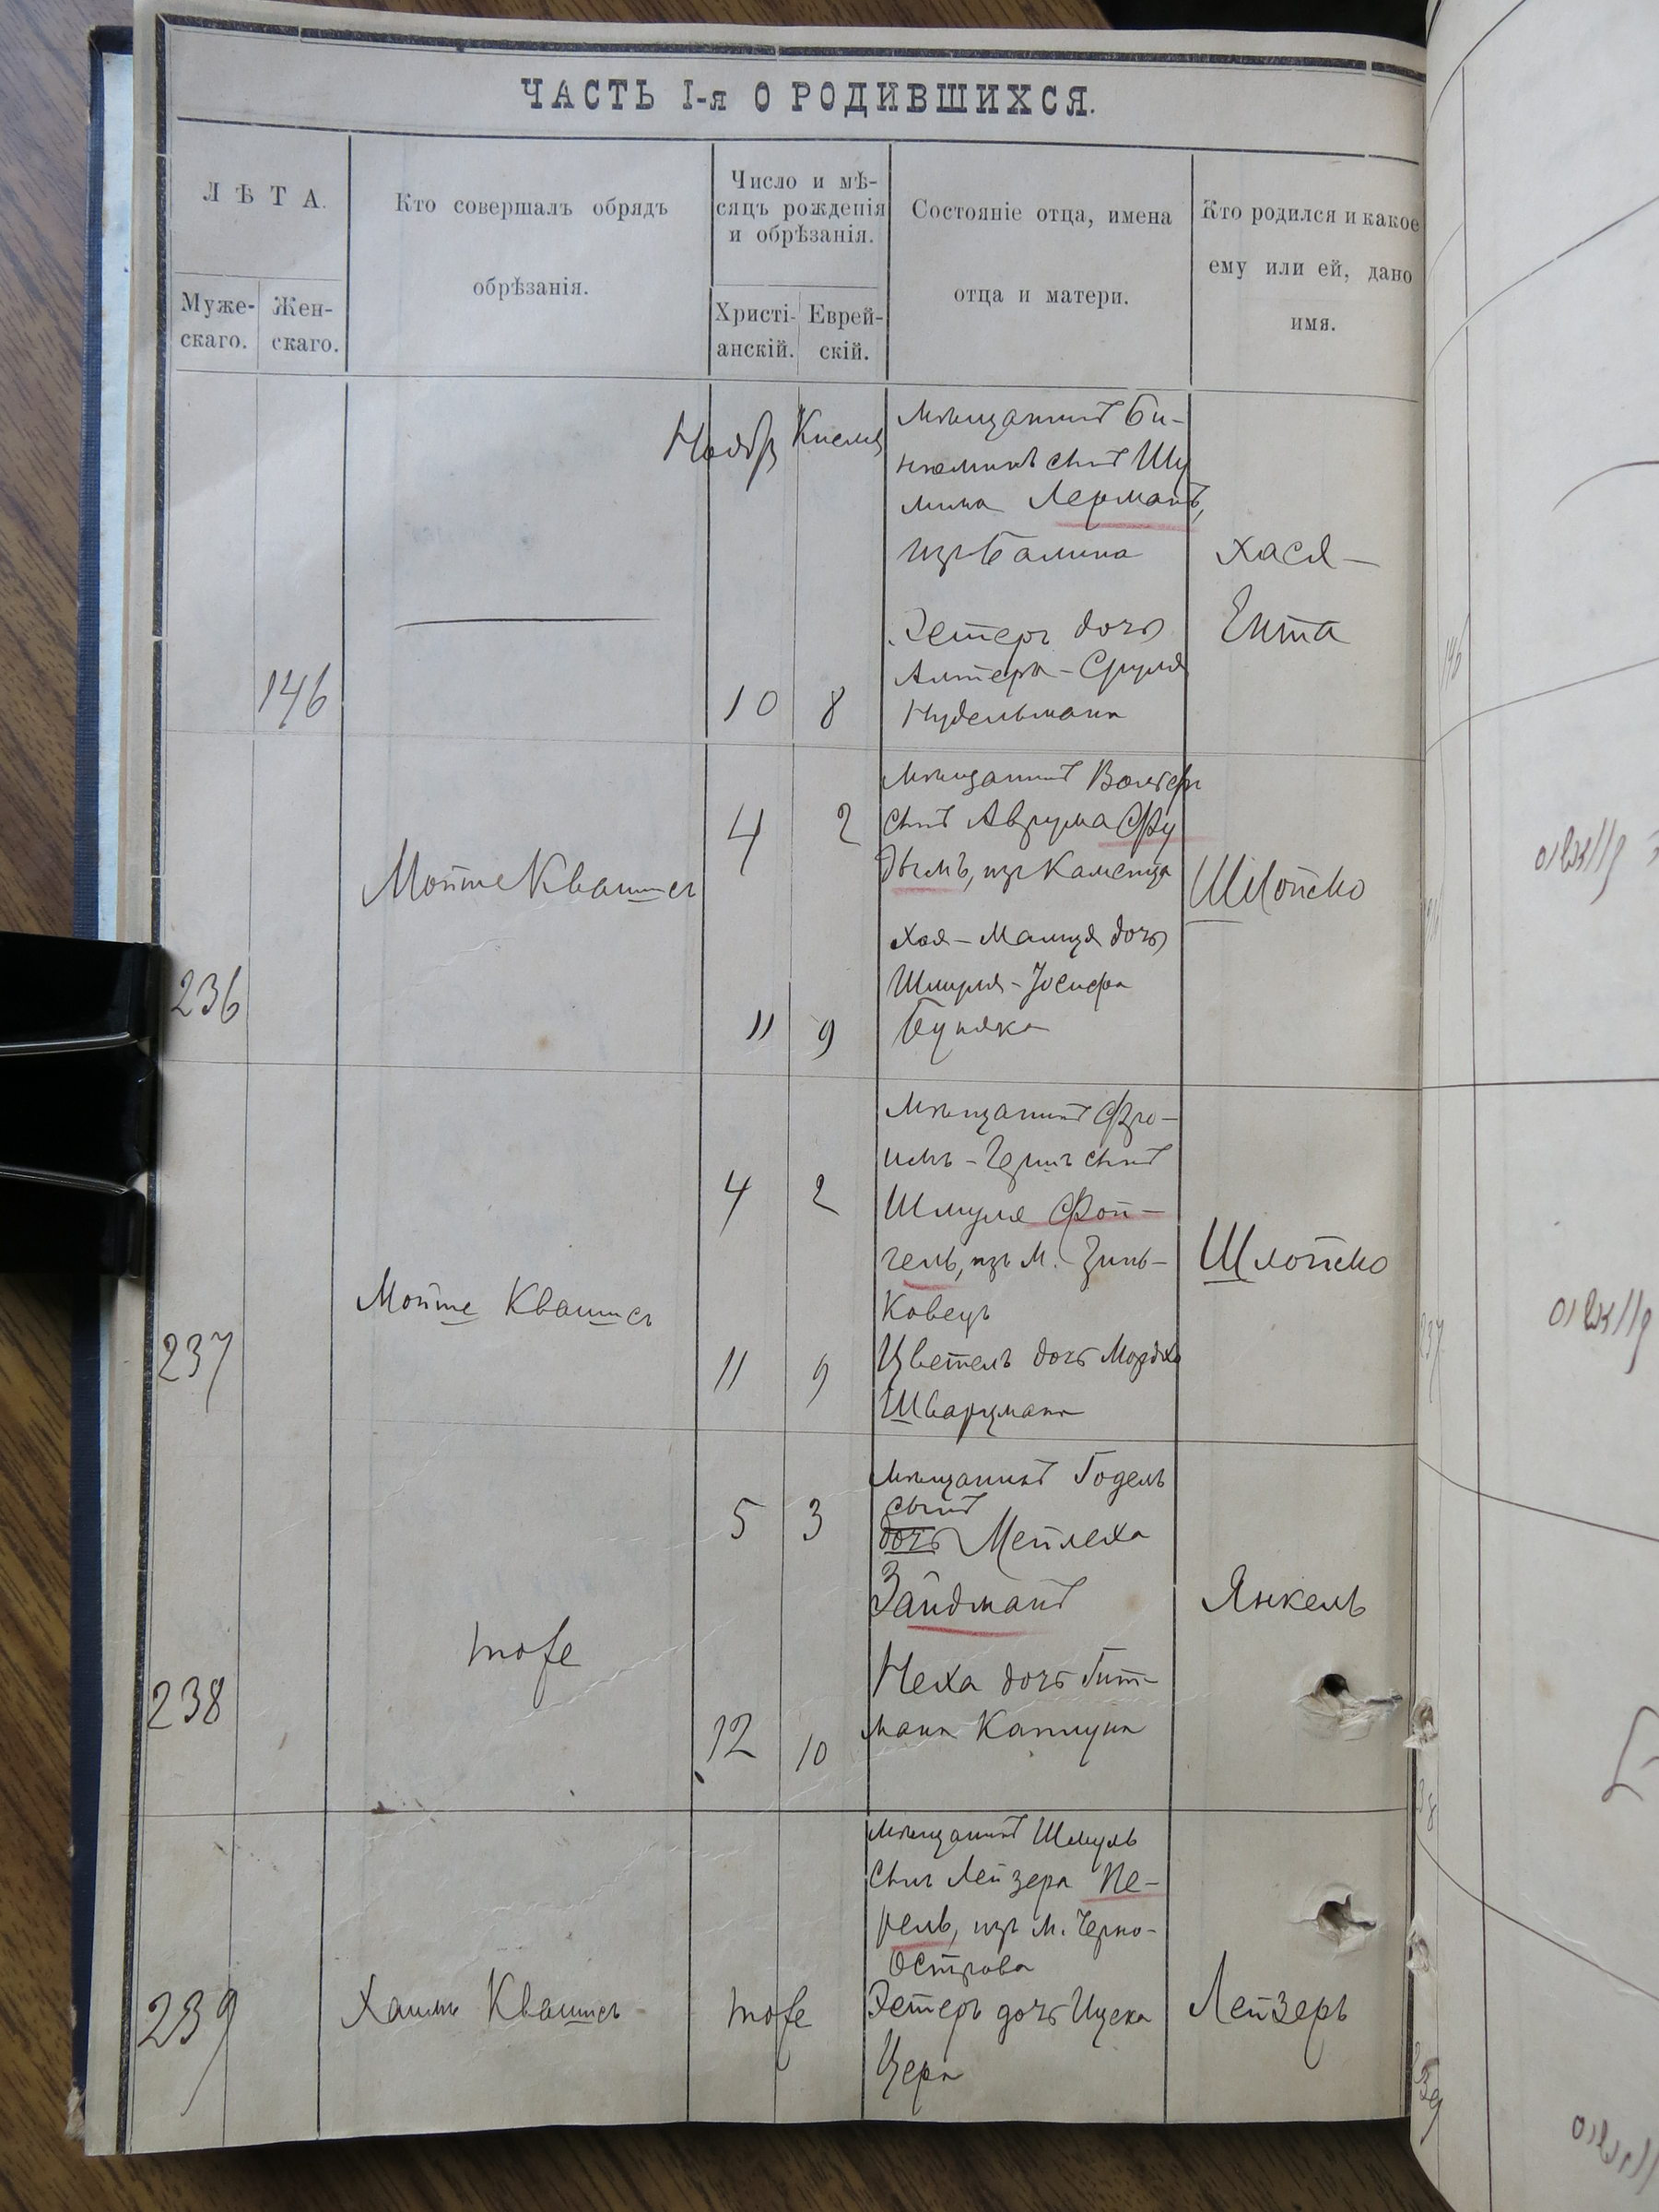 ЧАСТЬ I-я О РОДИВШИХСЯ.
ЛѢТА.
Муже-
скаго.
Жен-
скаго.
Кто совершалъ обрядъ
обрѣзанія.
Число и мѣ-
сяцъ рожденія
и обрѣзанія.
Христі-
анскій.
Еврей-
скій.
Состояніе отца, имена
отца и матери.
Кто родился и какое
ему или ей, дано
имя.
146
Ноябр
Кислц
10
8
мѣщанинъ Би-
нюминъ сынъ Шу
лима Лерманъ,
изъ Балина
Эстеръ дочь
Алтера-Сруля
Нудельмана
Хася-
Ента
236
Мойше Квашъ
4
2
11
9
мѣщанинъ Вольфъ
сынъ Аврума Фу
дымъ, изъ Каменца
Хая-Малця дочь
Шмуля-Іосифа
Буняка
Шлоймо
237
Мойше Квашъ
4
2
11
9
мѣщанинъ Фро-
имъ-Гершъ сынъ
Шмуля Фой-
гель, изъ м. Зинь-
ковецъ
Цветель дочь Мордко
Шварцмана
Шлоймо
238
тоже
5
3
12
10
мѣщанинъ Годель
сынъ
дочь Мейлеха
Зайдманъ
Неха дочь Гит-
мана Капцуна
Янкель
239
Хаимъ Квашъ
тоже
мѣщанинъ Шмуль
сынъ Лейзера Пе-
рель, изъ м. Черно-
Острова
Эстеръ дочь Ицека
Цера
Лейзеръ